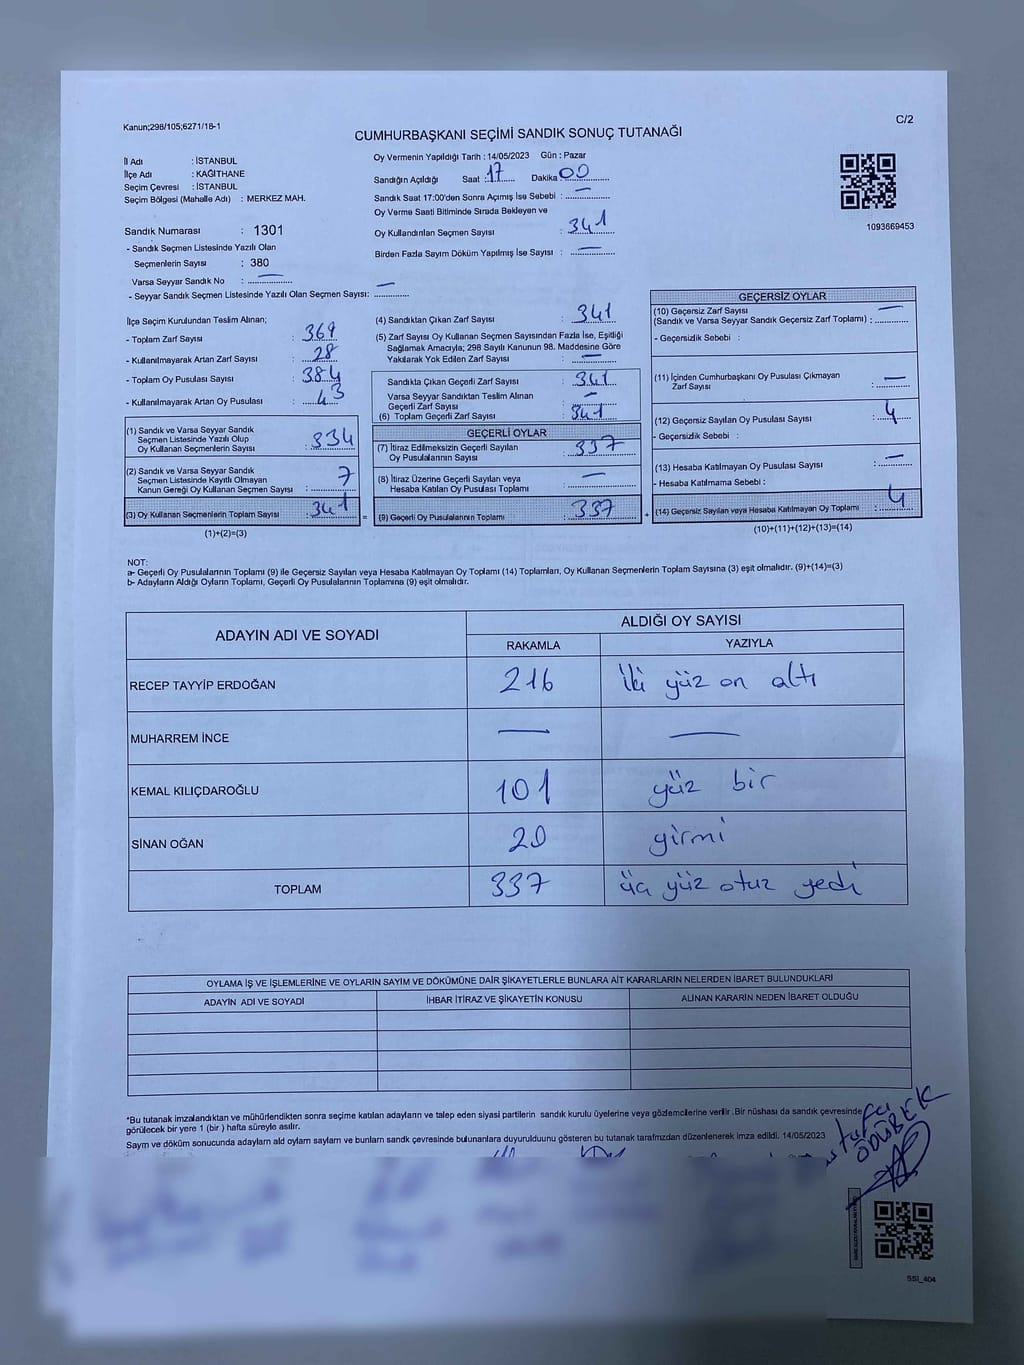 Kanun;298/105;6271/18-1
C/2
CUMHURBAŞKANI SEÇİMİ SANDIK SONUÇ TUTANAĞI
İl Adı : İSTANBUL
İlçe Adı : KAĞITHANE
Seçim Çevresi : İSTANBUL
Seçim Bölgesi (Mahalle Adı) : MERKEZ MAH.
Oy Vermenin Yapıldığı Tarih : 14/05/2023 Gün : Pazar
Sandığın Açıldığı Saat : 17 Dakika : 00
Sandık Saat 17:00'den Sonra Açımış İse Sebebi : —
Oy Verme Saati Bitiminde Sırada Bekleyen ve
Oy Kullandırılan Seçmen Sayısı : 341
Birden Fazla Sayım Döküm Yapılmış İse Sayısı : —
1093669453
Sandık Numarası : 1301
- Sandık Seçmen Listesinde Yazılı Olan
Seçmenlerin Sayısı : 380
Varsa Seyyar Sandık No : —
- Seyyar Sandık Seçmen Listesinde Yazılı Olan Seçmen Sayısı: —
İlçe Seçim Kurulundan Teslim Alınan;
- Toplam Zarf Sayısı : 369
- Kullanılmayarak Artan Zarf Sayısı : 28
- Toplam Oy Pusulası Sayısı : 384
- Kullanılmayarak Artan Oy Pusulası : 43
(1) Sandık ve Varsa Seyyar Sandık
Seçmen Listesinde Yazılı Olup
Oy Kullanan Seçmenlerin Sayısı : 334
(2) Sandık ve Varsa Seyyar Sandık
Seçmen Listesinde Kayıtlı Olmayan
Kanun Gereği Oy Kullanan Seçmen Sayısı : 7
(3) Oy Kullanan Seçmenlerin Toplam Sayısı : 341 =
(1)+(2)=(3)
(4) Sandıktan Çıkan Zarf Sayısı : 341
(5) Zarf Sayısı Oy Kullanan Seçmen Sayısından Fazla İse, Eşitliği
Sağlamak Amacıyla; 298 Sayılı Kanunun 98. Maddesine Göre
Yakılarak Yok Edilen Zarf Sayısı : —
Sandıkta Çıkan Geçerli Zarf Sayısı : 341
Varsa Seyyar Sandıktan Teslim Alınan
Geçerli Zarf Sayısı : —
(6) Toplam Geçerli Zarf Sayısı : 341
GEÇERLİ OYLAR
(7) İtiraz Edilmeksizin Geçerli Sayılan
Oy Pusulalarının Sayısı : 337
(8) İtiraz Üzerine Geçerli Sayılan veya
Hesaba Katılan Oy Pusulası Toplamı : —
(9) Geçerli Oy Pusulalarının Toplamı : 337 +
GEÇERSİZ OYLAR
(10) Geçersiz Zarf Sayısı
(Sandık ve Varsa Seyyar Sandık Geçersiz Zarf Toplamı) : —
- Geçersizlik Sebebi :
(11) İçinden Cumhurbaşkanı Oy Pusulası Çıkmayan
Zarf Sayısı : —
(12) Geçersiz Sayılan Oy Pusulası Sayısı : 4
- Geçersizlik Sebebi :
(13) Hesaba Katılmayan Oy Pusulası Sayısı : —
- Hesaba Katılmama Sebebi :
(14) Geçersiz Sayılan veya Hesaba Katılmayan Oy Toplamı : 4
(10)+(11)+(12)+(13)=(14)
NOT:
a- Geçerli Oy Pusulalarının Toplamı (9) ile Geçersiz Sayılan veya Hesaba Katılmayan Oy Toplamı (14) Toplamları, Oy Kullanan Seçmenlerin Toplam Sayısına (3) eşit olmalıdır. (9)+(14)=(3)
b- Adayların Aldığı Oyların Toplamı, Geçerli Oy Pusulalarının Toplamına (9) eşit olmalıdır.
ADAYIN ADI VE SOYADI
ALDIĞI OY SAYISI
RAKAMLA YAZIYLA
RECEP TAYYİP ERDOĞAN 216 İki yüz on altı
MUHARREM İNCE — —
KEMAL KILIÇDAROĞLU 101 yüz bir
SİNAN OĞAN 20 yirmi
TOPLAM 337 üç yüz otuz yedi
OYLAMA İŞ VE İŞLEMLERİNE VE OYLARIN SAYIM VE DÖKÜMÜNE DAİR ŞİKAYETLERLE BUNLARA AİT KARARLARIN NELERDEN İBARET BULUNDUKLARI
ADAYIN ADI VE SOYADI İHBAR İTİRAZ VE ŞİKAYETİN KONUSU ALINAN KARARIN NEDEN İBARET OLDUĞU
*Bu tutanak imzalandıktan ve mühürlendikten sonra seçime katılan adayların ve talep eden siyasi partilerin sandık kurulu üyelerine veya gözlemcilerine verilir .Bir nüshası da sandık çevresinde
görülecek bir yere 1 (bir ) hafta süreyle asılır.
Sayım ve döküm sonucunda adayların ald oyların sayların ve bunların sandk çevresinde bulunanlara duyurulduunu gösteren bu tutanak tarafmzdan düzenlenerek imza edildi. 14/05/2023
SSİ_404